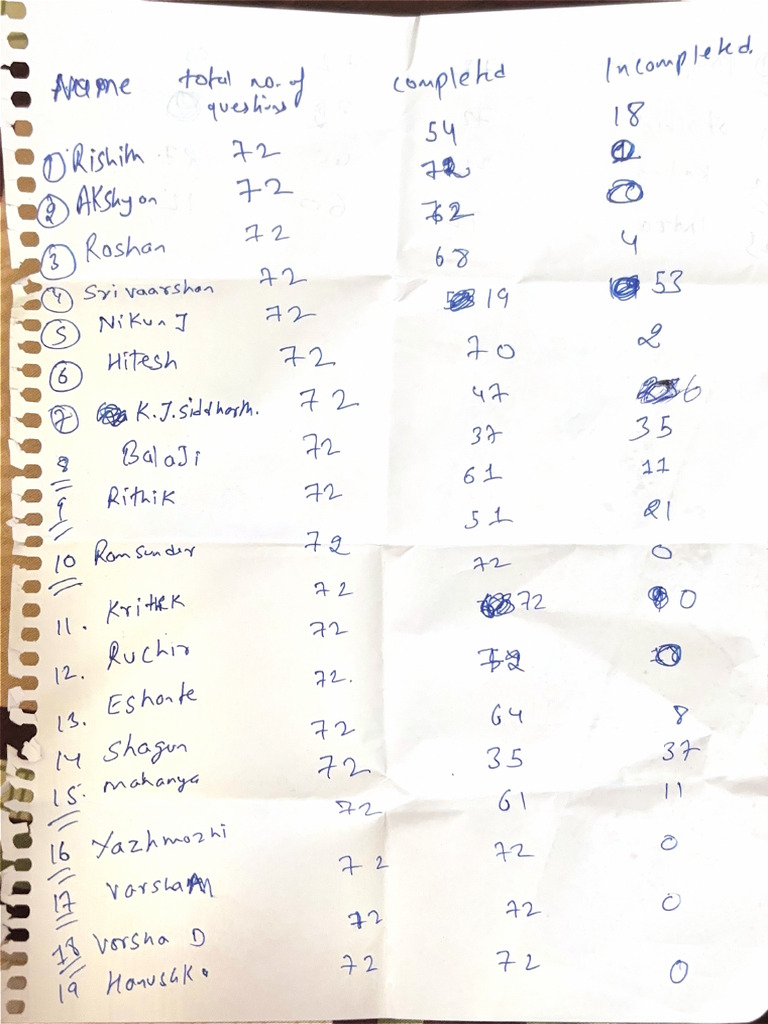 Name total no. of questions completed Incompleted.
1 Rishith 72 54 18
2 Akshyan 72 72
3 Roshan 72 72 0
4 Srivaarshan 72 68 4
5 Nikun J 72 19 53
6 Hitesh 72 70 2
7 K.J.siddharth. 72 47 6
8 Balaji 72 37 35
9 Rithik 72 61 11
10 Ramsunder 72 51 21
11. Krithik 72 72 0
12. Ruchir 72 72 0
13. Eshante 72. 72
14 Shagun 72 64 8
15. mahanya 72 35 37
16 Yazhmozhi 72 61 11
17 Varsha M 72 72 0
18 Varsha D 72 72 0
19 Hanushka 72 72 0